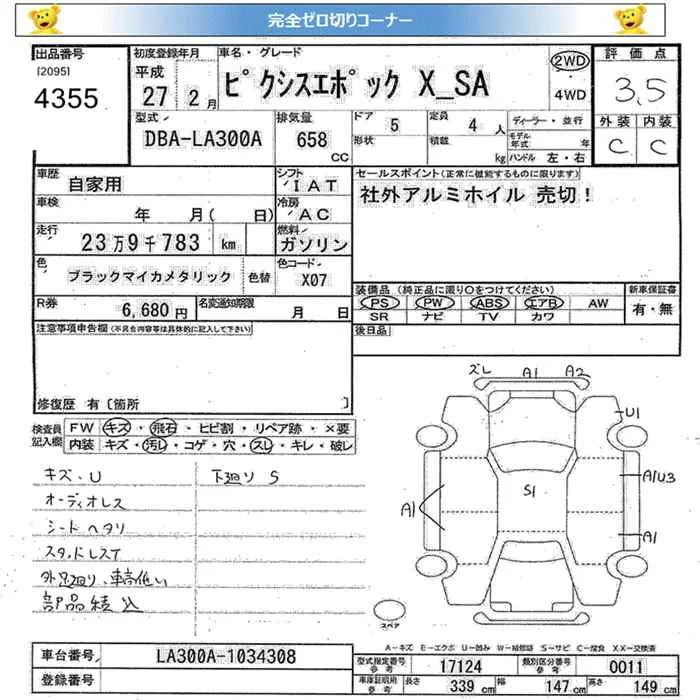 完全ゼロ切りコーナー
出品番号
[2095]
4355
初度登録年月
平成
27 2月
車名・グレード
ピクシスエポック X_SA
2WD
4WD
評価点
3.5
外装 内装
C C
型式
DBA-LA300A
排気量
658
CC
ドア
5
形状
定員
4人
積載
kg
ディーラー・並行
モデル年式 年
ハンドル 左・右
車歴
自家用
シフト
IAT
車検
年 月( 日)
冷房
AC
走行
23万9千783 km
燃料
ガソリン
色
ブラックマイカメタリック
色替
色コード
X07
R券
6,680円
名変通知期限
月 日
セールスポイント(正常に機能するものに限ります)
社外アルミホイル 売切!
装備品(純正品に限り○をつけてください)
PS PW ABS エアB AW
SR ナビ TV カワ
新車保証書
有・無
後日品
注意事項申告欄(不具合内容等は具体的に記入して下さい)
修復歴 有〔箇所 〕
検査員記入欄
FW キズ・飛石・ヒビ割・リペア跡・×要
内装 キズ・汚れ・コゲ・穴・スレ・キレ・破レ
キズ・U 下廻りS
オーディオレス
シートヘタリ
スタッドレスT
外足廻り、車高低い
部品積込
ズレ A1 A2
U1
A1U3
S1
A1
A1
スペア
A-キズ E-エクボ U-凹み W-補修跡 S-サビ C-腐食 XX-交換済
車台番号
LA300A-1034308
登録番号
型式指定番号
参考
17124
類別区分番号
参考
0011
車庫証明用
参考
長さ 339cm 幅 147cm 高さ 149cm